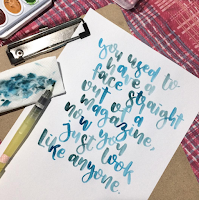 you used to
have a
face straight
out of a
magazine,
now you
just look
like anyone.